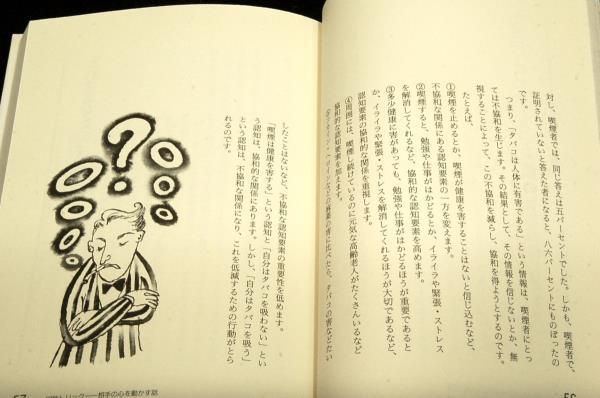 対し、喫煙者では、同じ答えは五パーセントでした。しかも、喫煙者で、
証明されていないと答えた者になると、八六パーセントにものぼったの
です。
つまり、「タバコは人体に有害である」という情報は、喫煙者にとっ
ては不協和を生じます。その結果として、その情報を信じないとか、無
視することによって、この不協和を減らし、協和を得ようとするのです。
たとえば、
①喫煙を止めるとか、喫煙が健康を害することはないと信じ込むなど、
不協和な関係にある認知要素の一方を変えます。
②喫煙すると、勉強や仕事がはかどるとか、イライラや緊張・ストレス
を解消してくれるなど、協和的な認知要素を高めます。
③多少健康に害があっても、勉強や仕事がはかどるほうが重要であると
か、イライラや緊張・ストレスを解消してくれるほうが大切であるなど、
認知要素の協和的な関係を重視します。
④周囲には、喫煙し続けているのに元気な高齢老人がたくさんいるなど
協和的な認知要素を加えます。
などの麻薬の害に比べたら、タバコの害などたい
したことはないなど、不協和な認知要素の重要性を低めます。
「喫煙は健康を害する」という認知と「自分はタバコを吸わない」とい
う認知は、協和的な関係にあります。しかし、「自分はタバコを吸う」
という認知は、不協和な関係になり、これを低減するための行動がとら
れるのです。
相手の心を動かす話
57
56